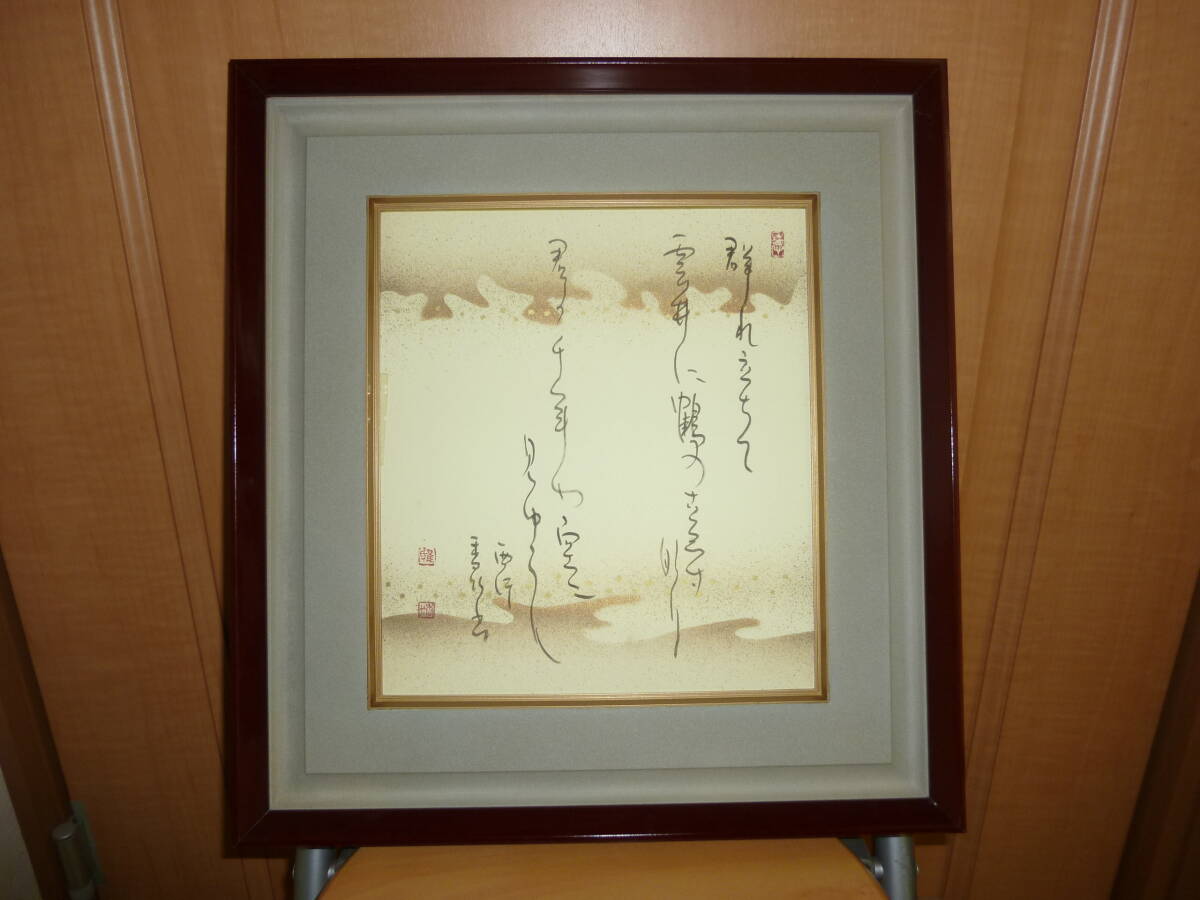 群れ立ちて
雲井に鶴のこゑす
なり
君が千年や空に
見ゆらん
西行